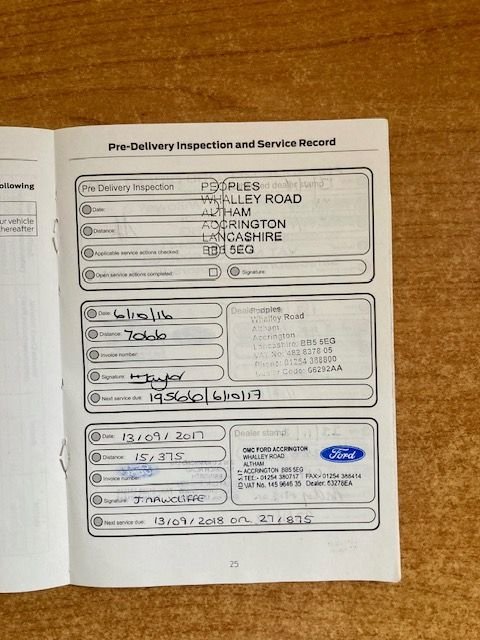 ollowing
ur vehicle
thereafter
Pre-Delivery Inspection and Service Record
Pre Delivery Inspection
Date:
Distance:
Applicable service actions checked:
Open service actions completed:
PEOPLES
WHALLEY ROAD
ALTHAM
ACCRINGTON
LANCASHIRE
BB5 5EG
dealer stamp
Signature:
Date: 6/10/16
Distance: 7066
Invoice number:
Signature: Taylor
Next service due: 19566/6/10/17
Peoples
Whalley Road
Altham
Accrington
Lancashire: BB5 5EG
VAT No: 482 8378 05
Phone: 01254 388800
Dealer Code: 66292AA
Date: 13/09/2017
Distance: 15,375
Invoice number:
Signature: J. RAWCLIFFE
Next service due: 13/09/2018 OR 27,875
Dealer stamp
OMC FORD ACCRINGTON
WHALLEY ROAD
ALTHAM
ACCRINGTON BB5 5EG
TEL:- 01254 380717 FAX:- 01254 388414
VAT No. 145 9646 35 Dealer: 53278EA
Ford
25